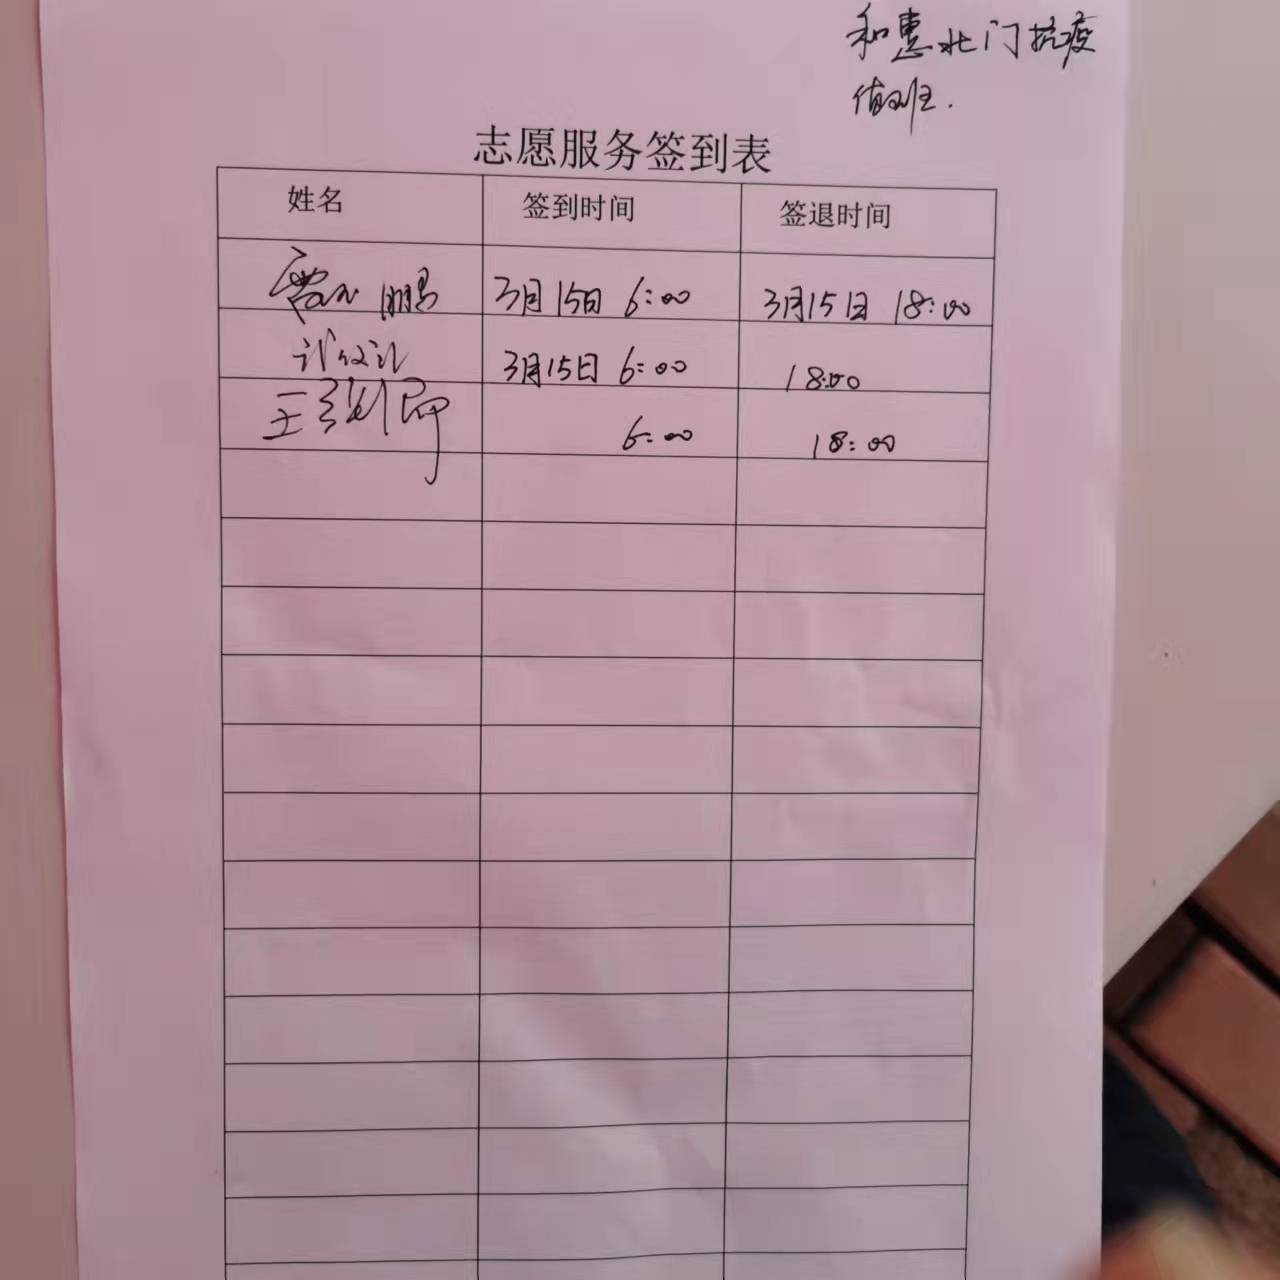 和惠北门抗疫
值班.
志愿服务签到表
姓名 签到时间 签退时间
鹏 3月15日 6:00 3月15日 18:00
3月15日 6:00 18:00
王 6:00 18:00